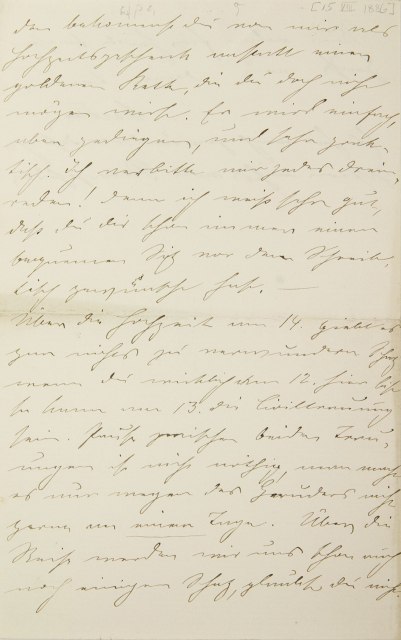 [15 VIII 1886]
den bekommst du von mir als
Hochzeitsgeschenk anstatt einer
goldenen Kette, die du doch nicht
mögen wirst. Er wird einfach,
aber gediegen, und sehr prak
tisch. Ich verbitte mir jedes Drein,
reden! Denn ich weiß sehr gut,
daß du dir schon immer einen
bequemen Sitz vor dem Schreib,
tisch gewünscht hast. —
Über die Hochzeit am 14. giebt es
gar nichts zu verwundern Schatz
wenn du wirklich am 12. hier bist
so kann am 13. die Civiltrauung
sein. Pause zwischen beiden Trau,
ungen ist nicht nöthig, man macht
es nur wegen des nicht
gerne an einem Tage. Über die
Reise werden wir uns schon auch
noch einigen Schatz, glaubst du nicht